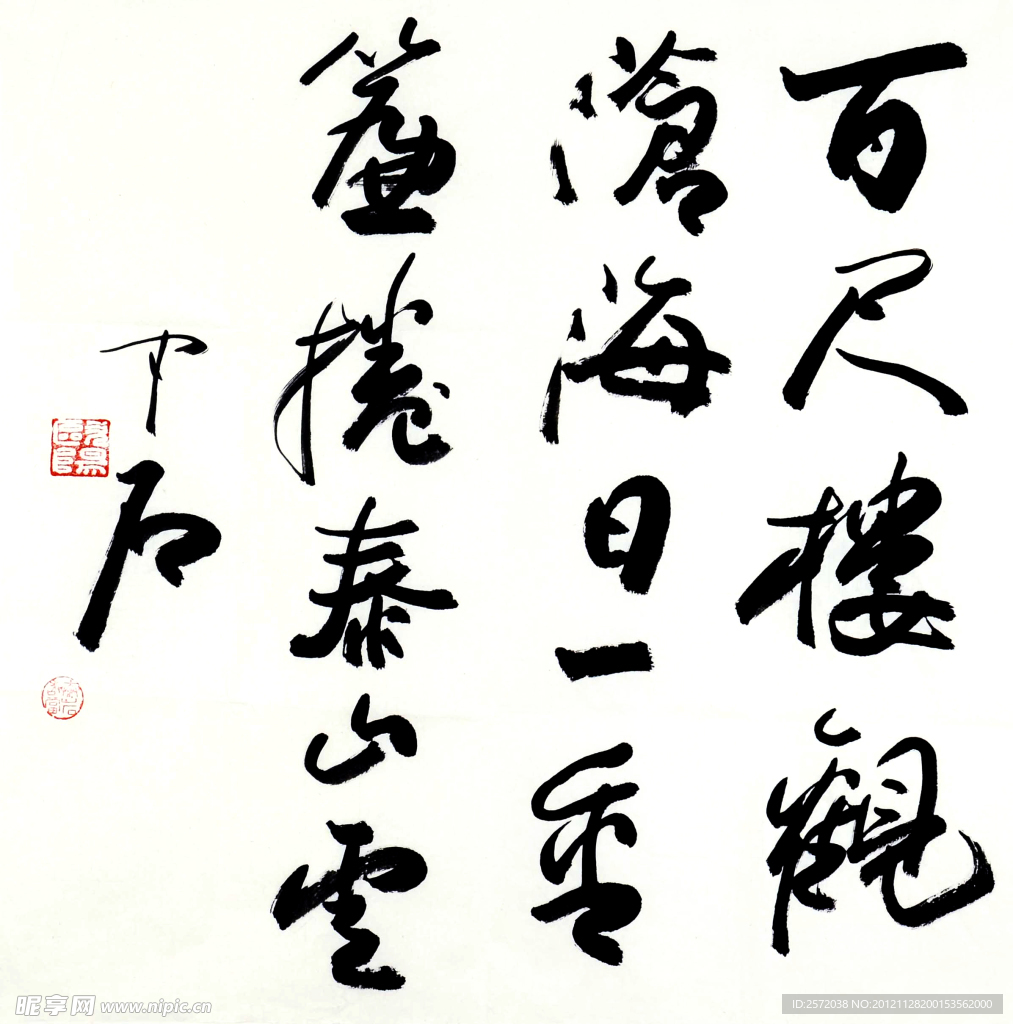 百尺樓觀
滄海日一重
簾捲泰山雲
中石
昵享网 www.nipic.cn
ID:2572038 NO:20121128200153562000